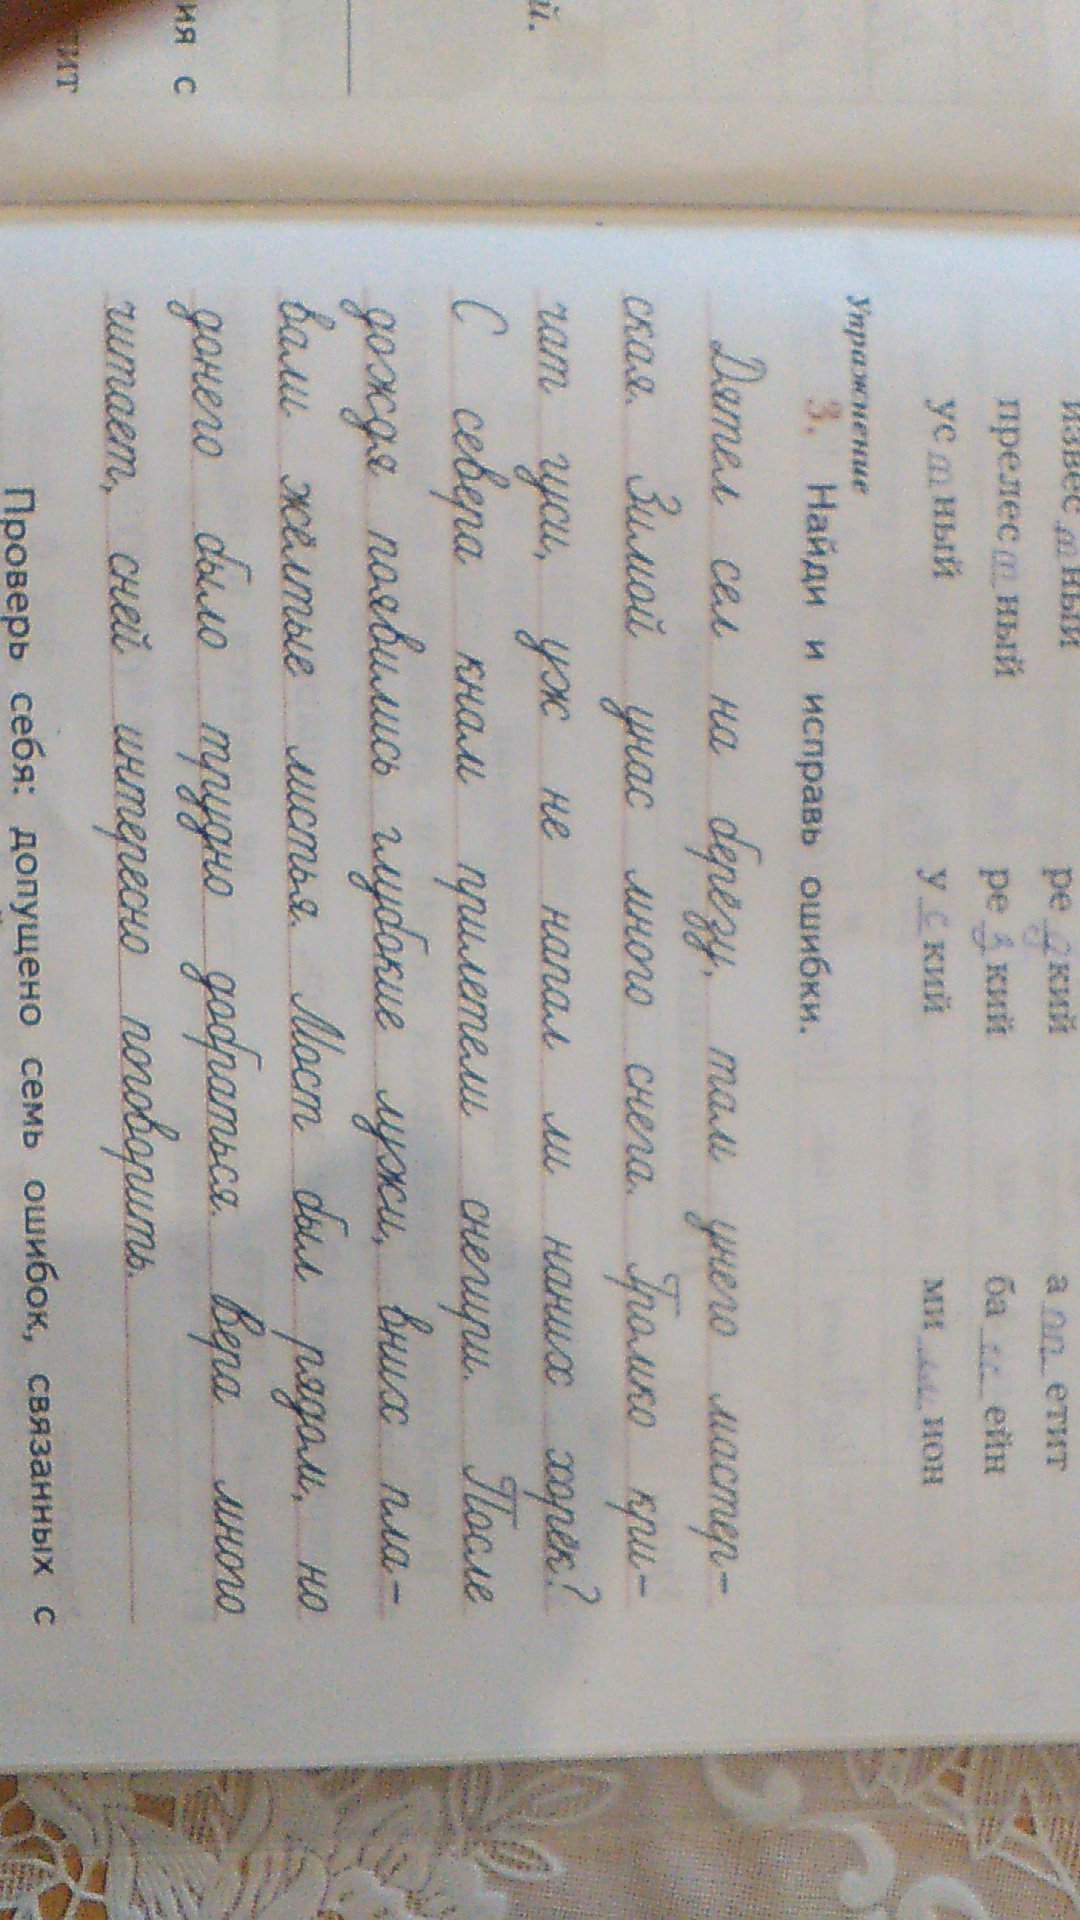 ия с
тит
й.
извес т ный
прелес т ный
ус т ный
ре кий
ре кий
у с кий
а пп етит
ба сс ейн
ми нон
Упражнение
3. Найди и исправь ошибки.
Дятел сел на берегу, там унего мастер-
ская. Зимой унас много снега. Громко кри-
чат гуси, уж не напал ли наних хорёк?
С севера кнам прилетели снегири. После
дождя появились глубокие лужи, вних пла-
вали жёлтые листья. Мост был рядом, но
донего было трудно добраться. Вера много
читает, сней интересно поговорить.
Проверь себя: допущено семь ошибок, связанных с